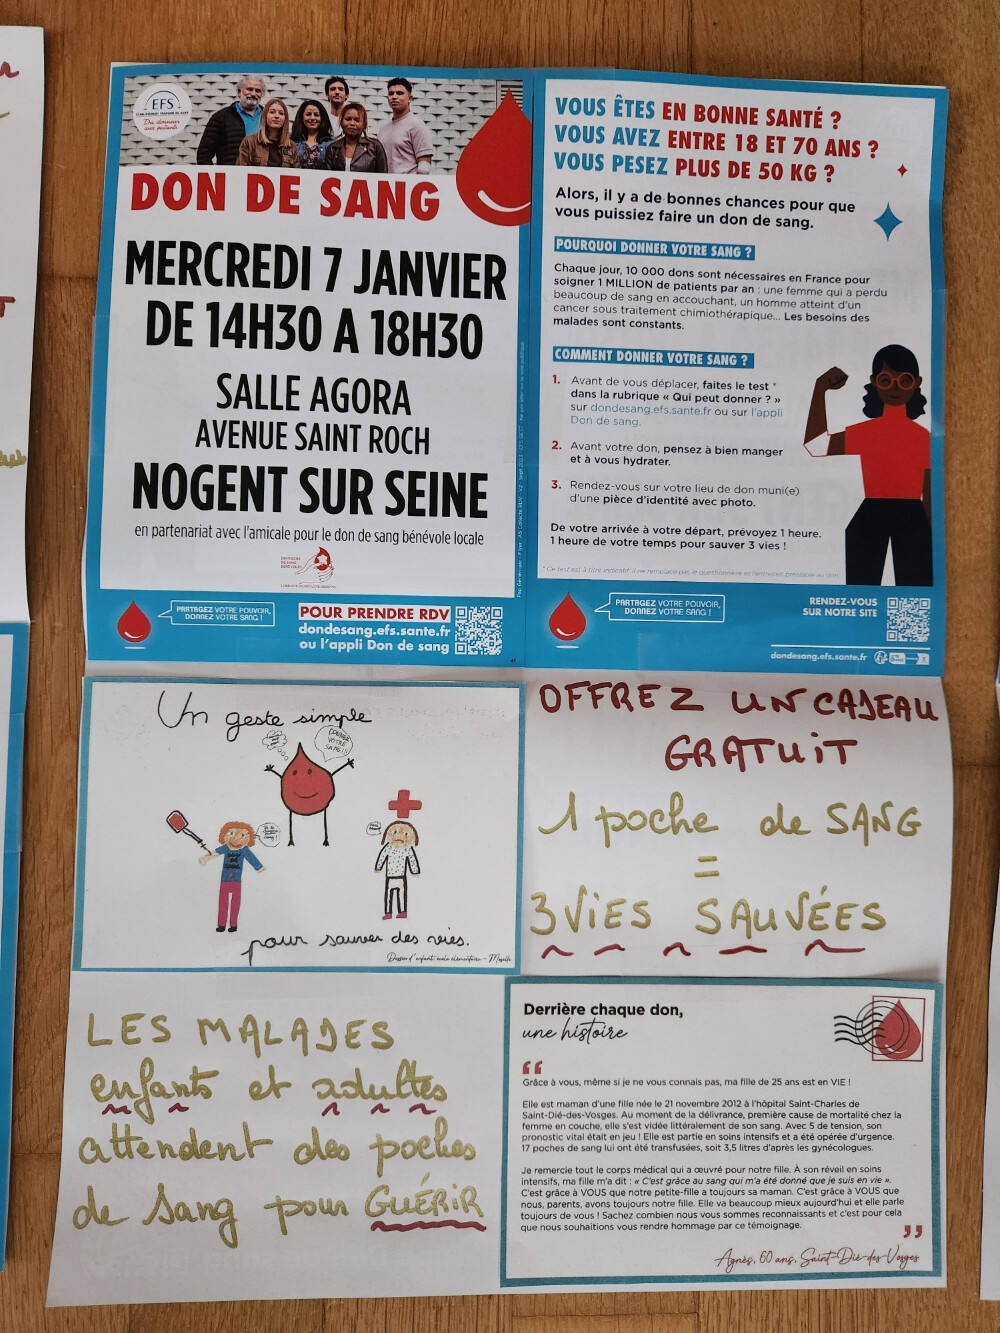 EFS
Du donneur
aux patients
DON DE SANG
MERCREDI 7 JANVIER
DE 14H30 A 18H30
SALLE AGORA
AVENUE SAINT ROCH
NOGENT SUR SEINE
en partenariat avec l'amicale pour le don de sang bénévole locale
PARTAGEZ VOTRE POUVOIR,
DONNEZ VOTRE SANG !
POUR PRENDRE RDV
dondesang.efs.sante.fr
ou l'appli Don de sang
VOUS ÊTES EN BONNE SANTÉ ?
VOUS AVEZ ENTRE 18 ET 70 ANS ?
VOUS PESEZ PLUS DE 50 KG ?
Alors, il y a de bonnes chances pour que
vous puissiez faire un don de sang.
POURQUOI DONNER VOTRE SANG ?
Chaque jour, 10 000 dons sont nécessaires en France pour
soigner 1 MILLION de patients par an : une femme qui a perdu
beaucoup de sang en accouchant, un homme atteint d'un
cancer sous traitement chimiothérapique... Les besoins des
malades sont constants.
COMMENT DONNER VOTRE SANG ?
1. Avant de vous déplacer, faites le test *
dans la rubrique « Qui peut donner ? »
sur dondesang.efs.sante.fr ou sur l'appli
Don de sang.
2. Avant votre don, pensez à bien manger
et à vous hydrater.
3. Rendez-vous sur votre lieu de don muni(e)
d'une pièce d'identité avec photo.
De votre arrivée à votre départ, prévoyez 1 heure.
1 heure de votre temps pour sauver 3 vies !
* Ce test est à titre indicatif, il ne remplace pas le questionnaire et l'entretien préalable au don.
PARTAGEZ VOTRE POUVOIR,
DONNEZ VOTRE SANG !
RENDEZ-VOUS
SUR NOTRE SITE
dondesang.efs.sante.fr
Un geste simple
DONNEZ
VOTRE
SANG !!!
pour sauver des vies.
Dessin d'enfant, école élémentaire - Moselle
OFFREZ UN CADEAU
GRATUIT
1 poche de SANG
=
3 VIES SAUVÉES
LES MALADES
enfants et adultes
attendent des poches
de sang pour GUÉRIR
Derrière chaque don,
une histoire
“
Grâce à vous, même si je ne vous connais pas, ma fille de 25 ans est en VIE !
Elle est maman d'une fille née le 21 novembre 2012 à l'hôpital Saint-Charles de
Saint-Dié-des-Vosges. Au moment de la délivrance, première cause de mortalité chez la
femme en couche, elle s'est vidée littéralement de son sang. Avec 5 de tension, son
pronostic vital était en jeu ! Elle est partie en soins intensifs et a été opérée d'urgence.
17 poches de sang lui ont été transfusées, soit 3,5 litres d'après les gynécologues.
Je remercie tout le corps médical qui a œuvré pour notre fille. À son réveil en soins
intensifs, ma fille m'a dit : « C'est grâce au sang qui m'a été donné que je suis en vie ».
C'est grâce à VOUS que notre petite-fille a toujours sa maman. C'est grâce à VOUS que
nous, parents, avons toujours notre fille. Elle va beaucoup mieux aujourd'hui et elle parle
toujours de vous ! Sachez combien nous vous sommes reconnaissants et c'est pour cela
que nous souhaitions vous rendre hommage par ce témoignage.
”
Agnès, 60 ans, Saint-Dié-des-Vosges